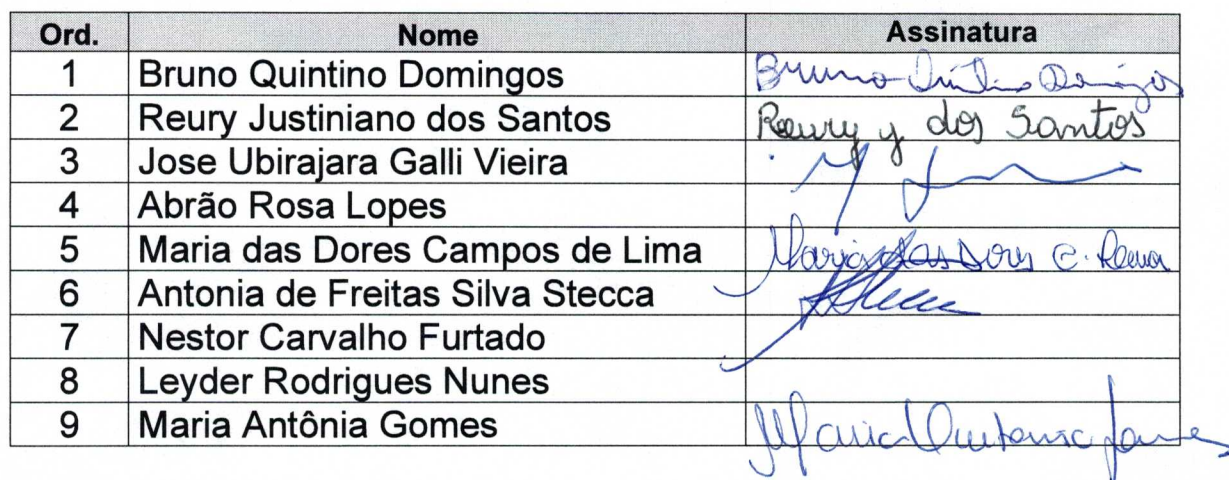 Ord. Nome Assinatura
1 Bruno Quintino Domingos Bruno Quintino Domingos
2 Reury Justiniano dos Santos Reury J dos Santos
3 Jose Ubirajara Galli Vieira
4 Abrão Rosa Lopes
5 Maria das Dores Campos de Lima Maria das Dores C. Lima
6 Antonia de Freitas Silva Stecca
7 Nestor Carvalho Furtado
8 Leyder Rodrigues Nunes
9 Maria Antônia Gomes Maria Antonia Gomes